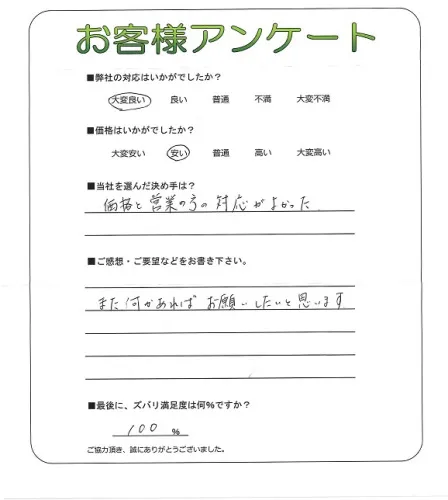 お客様アンケート
■弊社の対応はいかがでしたか？
大変良い 良い 普通 不満 大変不満
■価格はいかがでしたか？
大変安い 安い 普通 高い 大変高い
■当社を選んだ決め手は？
価格と営業の方の対応がよかった
■ご感想・ご要望などをお書き下さい。
また何かあれば お願いしたいと思います
■最後に、ズバリ満足度は何%ですか？
100 %
ご協力頂き、誠にありがとうございました。